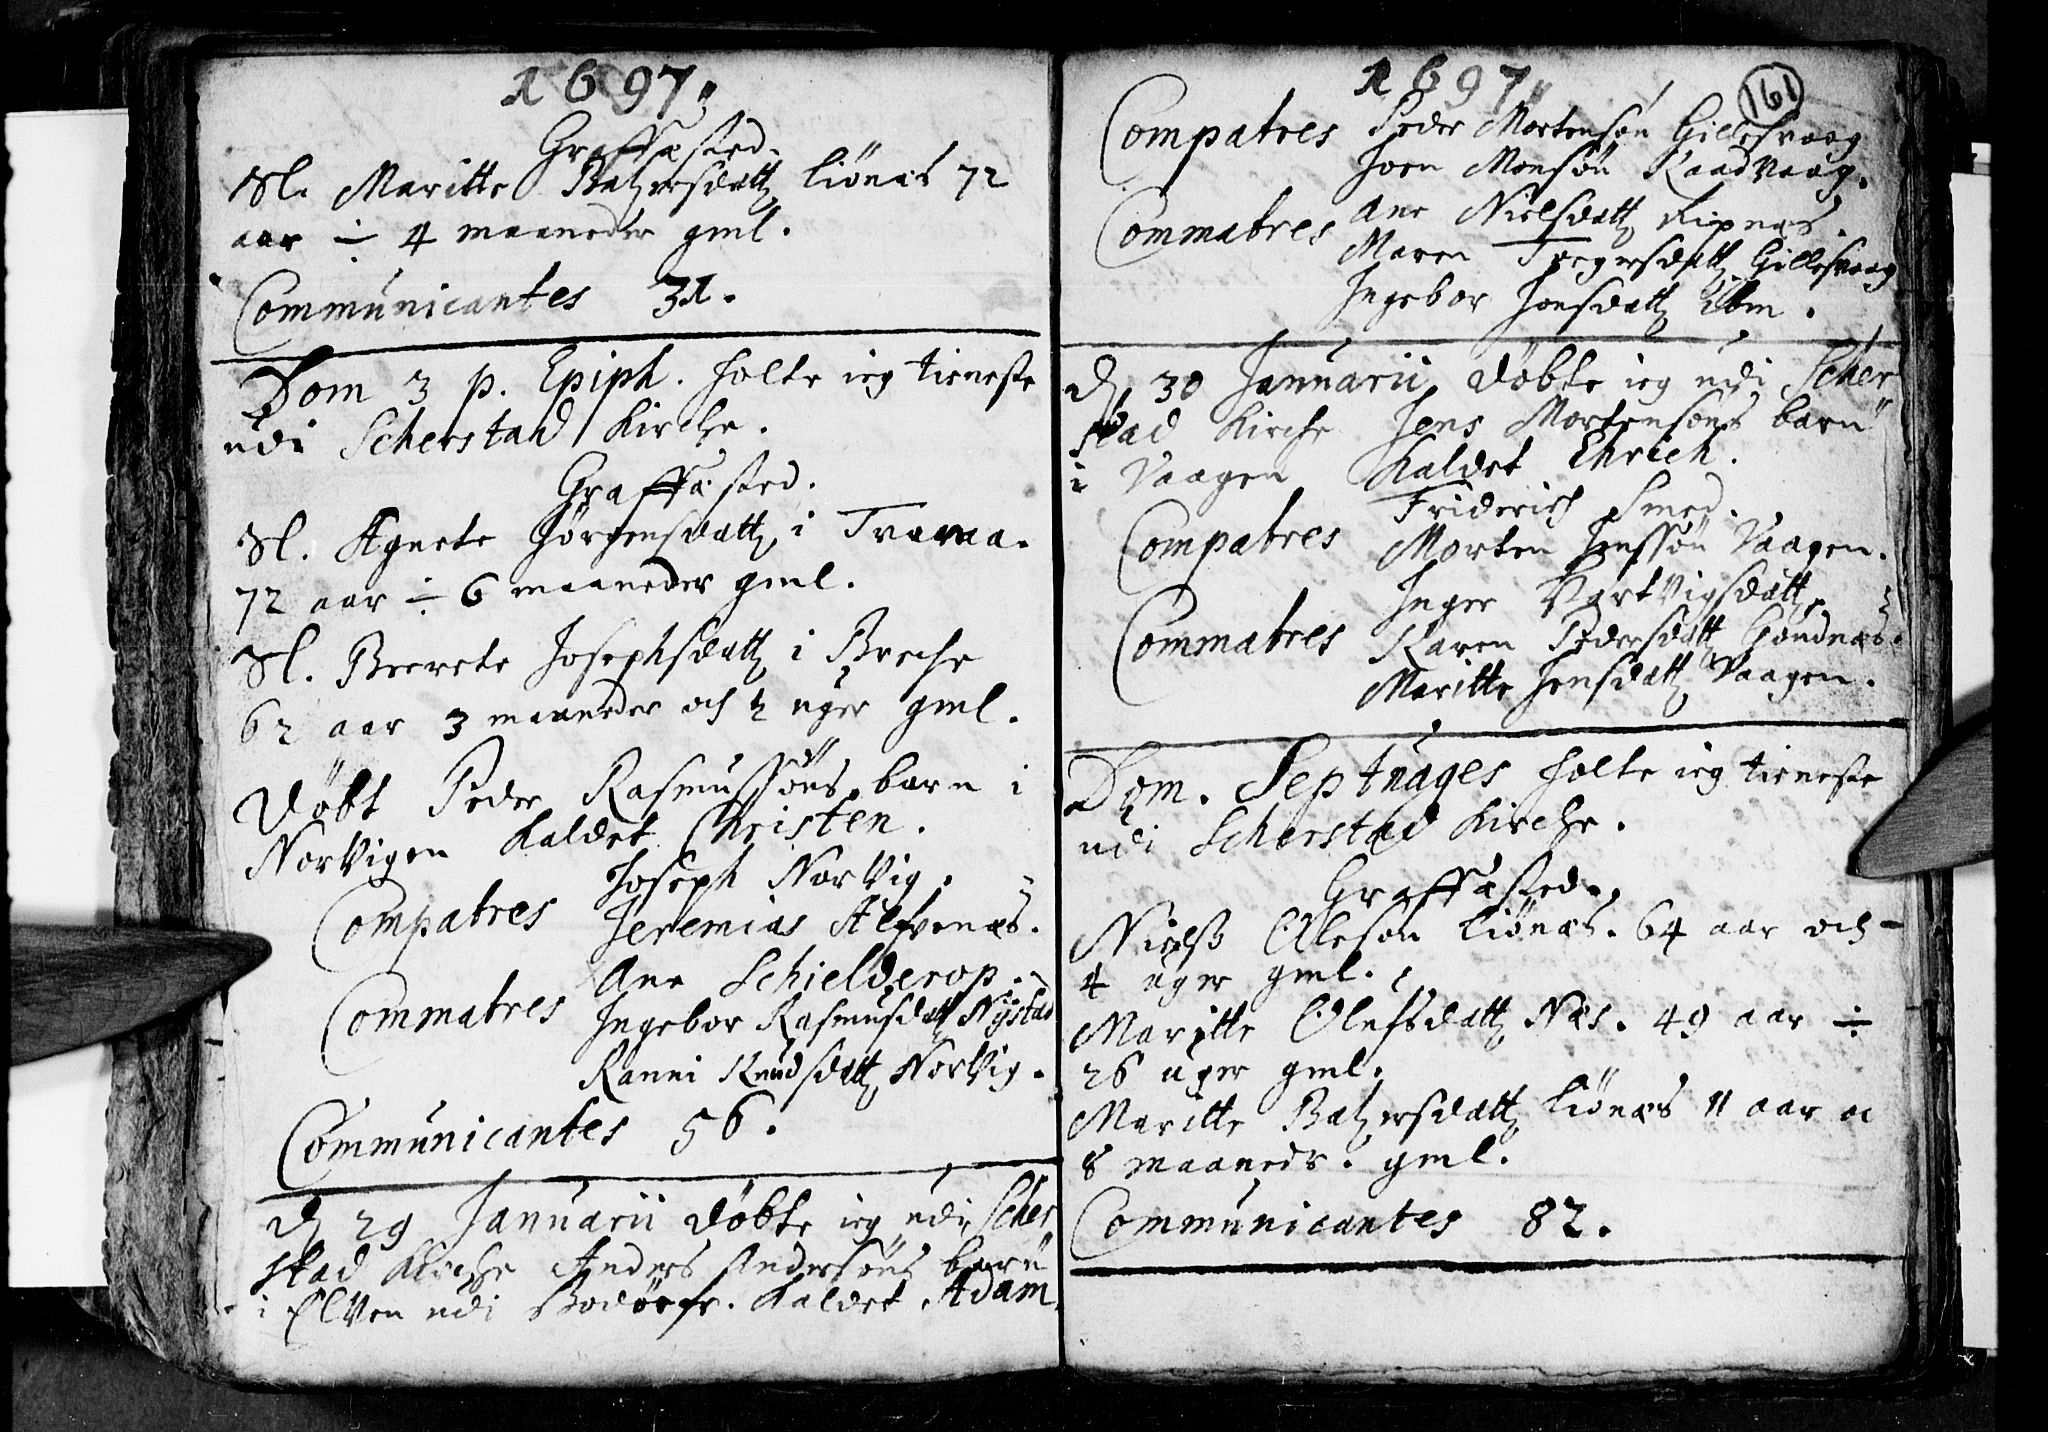 1697.
Graffæsted.
Sl. Maritte Baltzersdatt Liönæs 72
aar ÷ 4 maaneder gml.
Communicantes 31.
Dom 3 p. Epiph. holte ieg tieneste
udi Scherstad Kirche.
Graffæsted.
Sl. Agnete Jörgensdatt i
72 aar ÷ 6 maaneder gml.
Sl. Beerete Josephsdatt i Breche
62 aar 3 maaneder och 2 uger gml.
Döbt Peder Rasmussöns barn i
Norvigen kaldet Christen.
Joseph Norvig.
Compatres Jeremias Alfvenæs.
Ane Schielderop.
Commatres Ingebor Rasmusdatt Nÿstad
Ranni Knudsdatt Norvig.
Communicantes 56.
d 29 Januarii döbte ieg udi Scher
stad Kirche Anders Andersöns barn
i Elven udi Bodöefr. kaldet Adam.
1697.
161
Compatres Peder Mortensön Gillesvaag
Joen Monsön Raadvaag.
Ane Nielsdatt Ripnæs.
Commatres Maren Toegersdatt Gillesvaag
Ingebor Jonsdatt ibm.
d 30 Januarii döbte ieg udi Scher
stad Kirche Jens Mortensöns barn
i Vaagen kaldet Ehrich.
Friderich Smed.
Compatres Morten Jenssön Vaagen.
Inger Hartvigsdatt.
Commatres Karen Pedersdatt Godnæs.
Maritte Jensdatt Vaagen.
Dom. Septuages holte ieg tieneste
udi Scherstad Kirche.
Graffæsted.
Nielss Olesön Liönæs. 64 aar och
4 uger gml.
Maritte Olefsdatt Næs. 49 aar ÷
26 uger gml.
Maritte Baltzersdatt Liönæs 11 aar oc
8 maaneder. gml.
Communicantes 82.